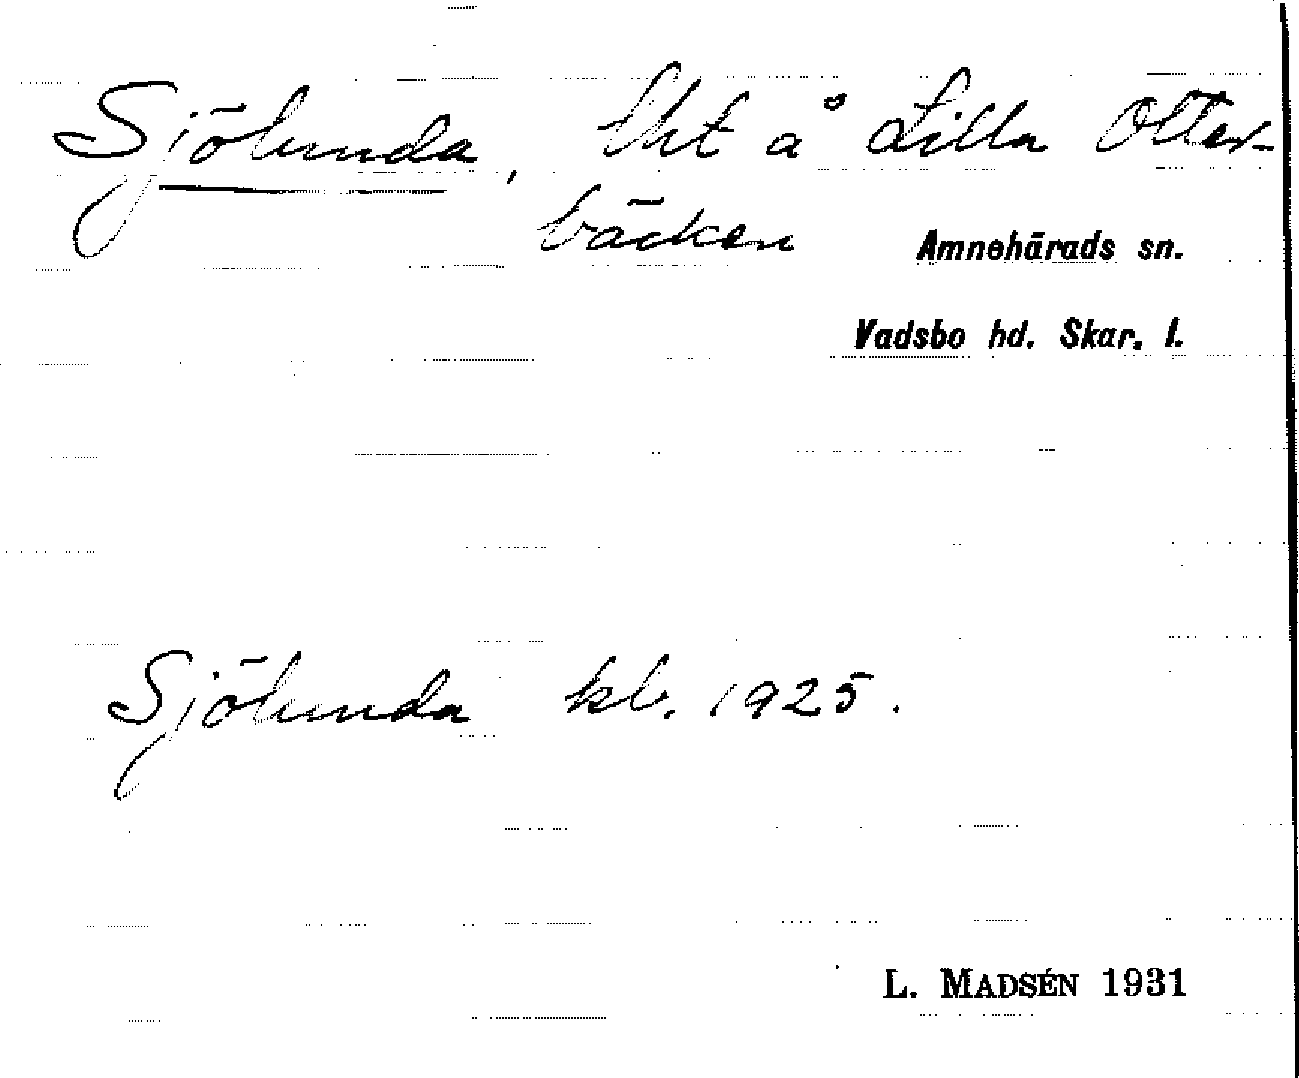 Sjölunda, lht å Lilla Otter-
bäcken
Amnehärads sn.
Vadsbo hd. Skar. l.
Sjölunda kb. 1925.
L. MADSÉN 1931